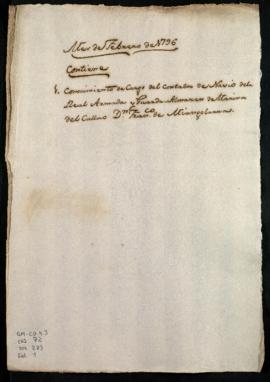 Mes de Febrero de 1796
Contiene
1. Conocimiento de Cargo del Contador de Navio de la
Real Armada y Guarda Almacen de Marina
del Callao Dn Franco de
GM-CO 4.3
CAJ 72
DOC 273
Fol 1